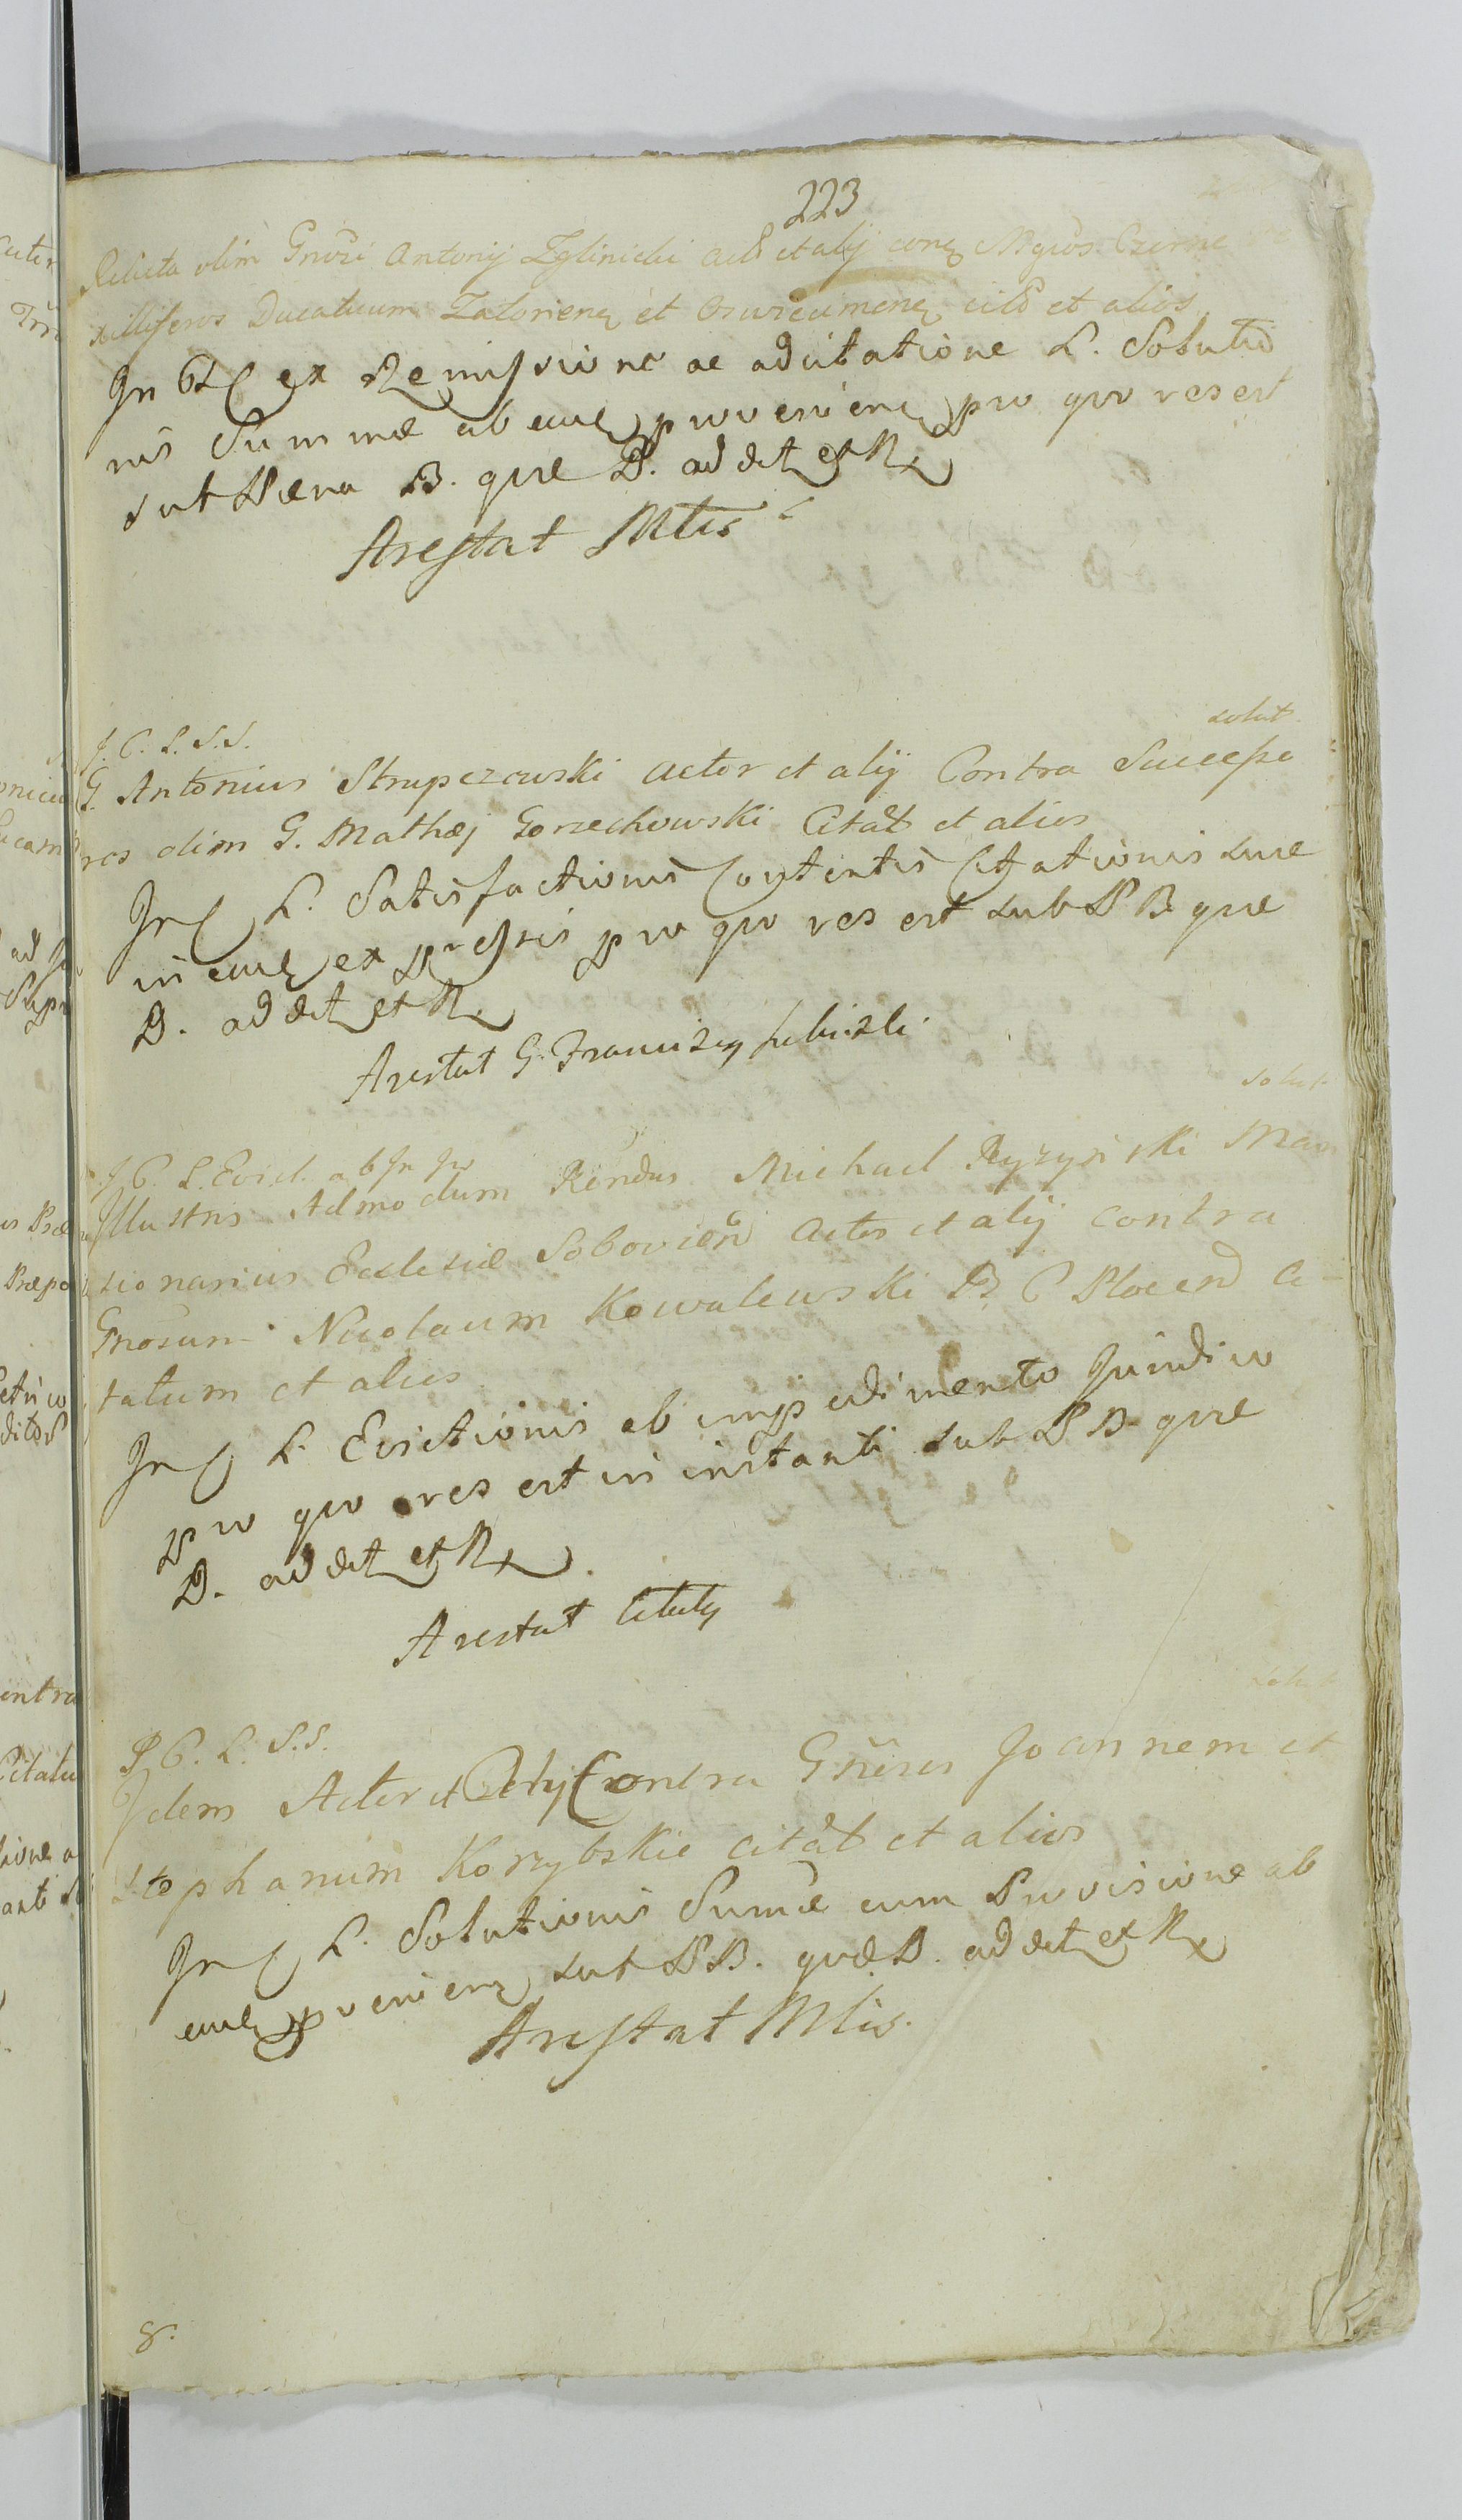 223
Relicta olim Gnosi Antonij Zglinicki act et alij conq Mgcos Czerne
xilliferos Ducatuum Zatorienq et Oswiecimenq citt et alios
In ex Remissione ac adcitatione L. Solutio
nis Summæ ab eucq provenienq pro quo res est
sub Pæna B. quæ D. addet et R
Arestat Mtis
solut
J. C. L. S. S.
G. Antonius Strupczewski actor et alij Contra Successo
res olim G. Mathæj Gorzechowski Citat et alios
In C L. Satisfactionis Contentis Citationis suæ
in eucq expressis pro quo res est sub P B quæ
D. addet et R
Arestat G. Franciszeq
solut
J. C. L. Evict. ab In Ju
Illustris Admodum Rendus Michael Ryzyński Man
sionarius Ecclesiæ Sobovien Actor et alij contra
Gnosum Nicolaum Kowalewski B. C Plocen Ci-
tatum et alios
In C L. Evictionis ab impedimento Juridico
pro quo res est in instanti sub P B quæ
D. addet et R
Arestat Citatq
solut
J C. L. S. S.
Idem Actor et Alij Contra Gnosos Joannem et
Stephanum Korzybskie citat et alios
In C L. Solutionis Sumæ cum Provisione ab
eucq provenienq sub P B. quæ D. addet et R
Arestat Mtis.
8.